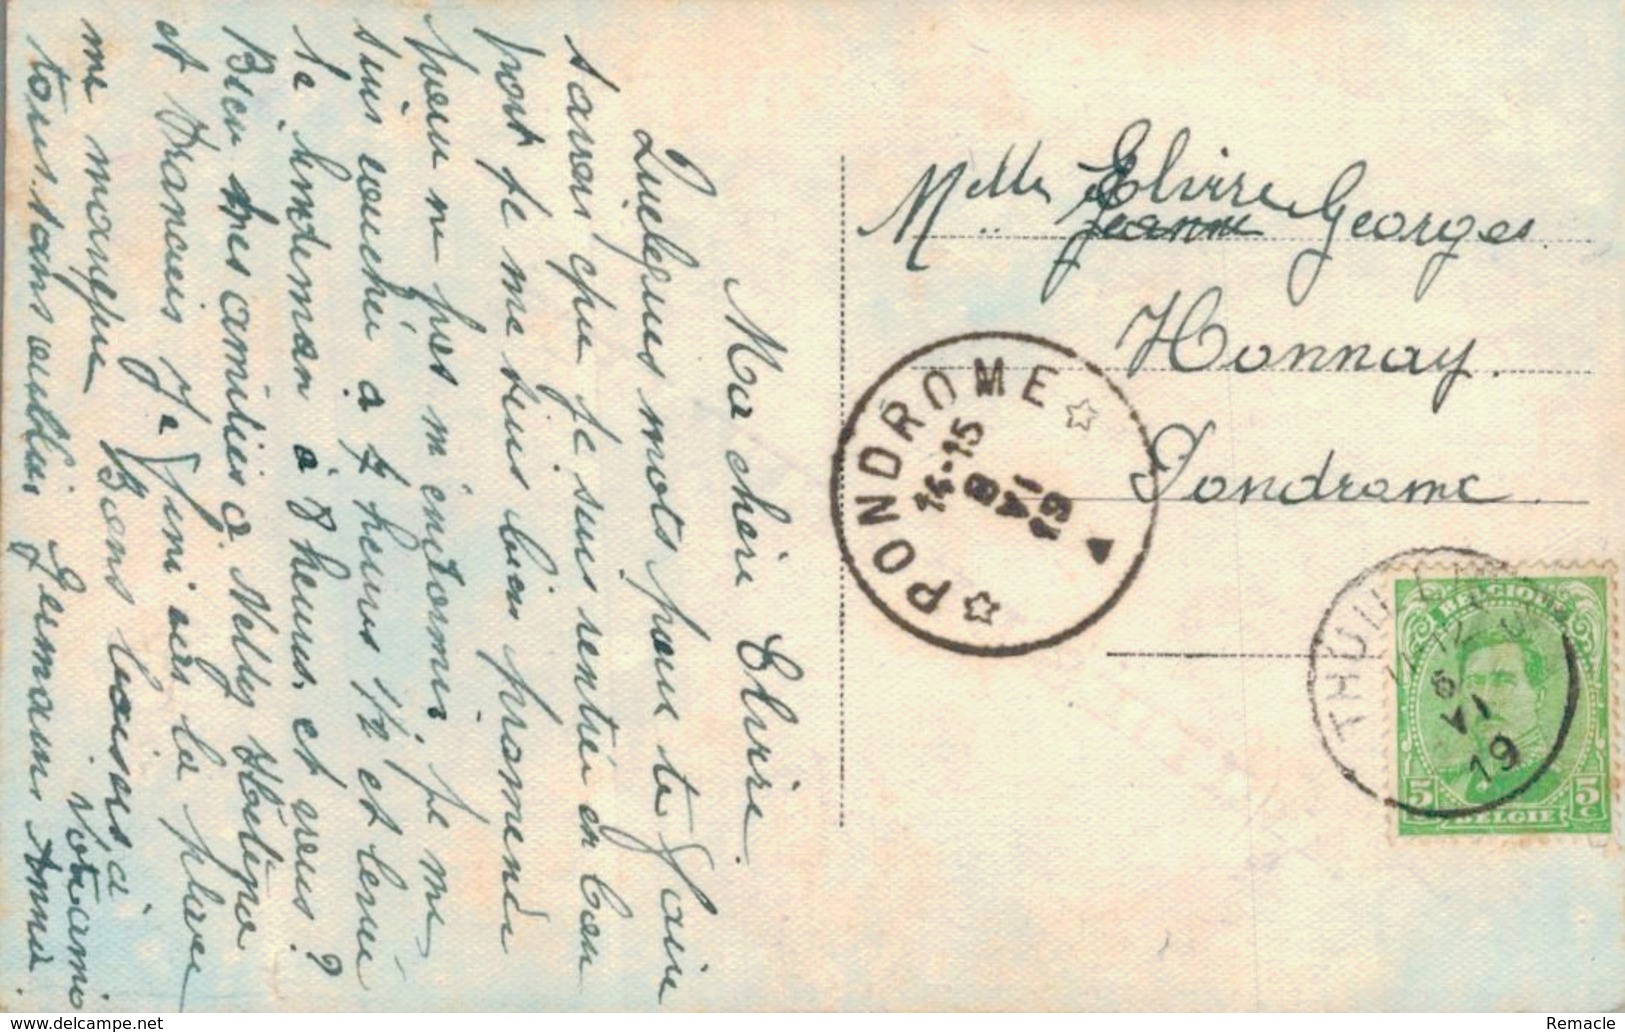 Ma chère Elvire.
Quelques mots pour te faire
savoir que je suis rentré en bon
port je me suis bien promené
peur ne pas m'endormir, je me
suis couché à 7 heurs 1/2 et levé
le lendeman à 8 heurs, et vous?
Bien mes amitiés à Nelly Philippe
et Francois j'e
la place
me manque Bons baisers à
tous sans oublier Germain, Votre amie
Anna.
Melle Elvire Georges
Jeanne
Honnay.
Pondrome
PONDROME
14-15
8
VI
19
THUI
6
VI
19
BELGIQUE
5c
5c
BELGIE
www.delcampe.net
Remacle